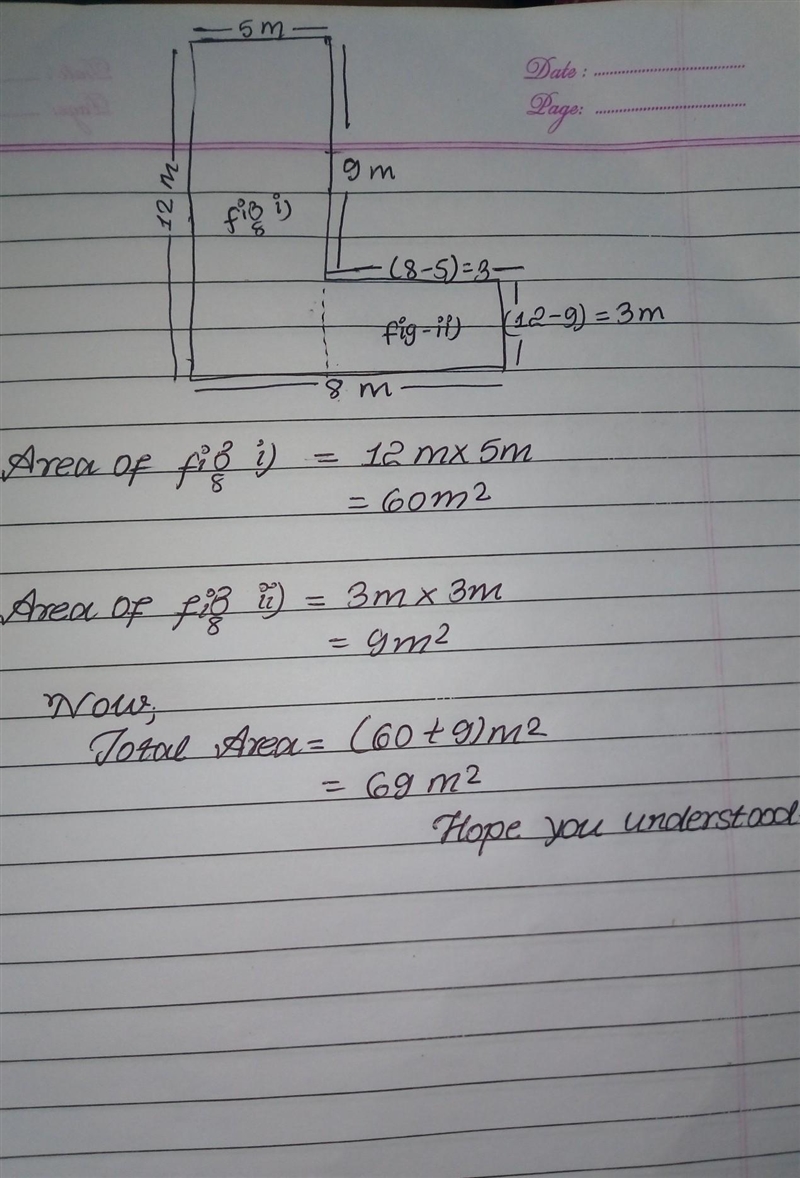 5 m
Date :
Page:
12 m
9 m
fig i)
(8-5)=3
fig-ii)
(12-9) = 3m
8 m
Area of fig i) = 12 m x 5m
= 60m²
Area of fig ii) = 3m x 3m
= 9m²
Now,
Total Area = (60 + 9)m²
= 69 m²
Hope you understood